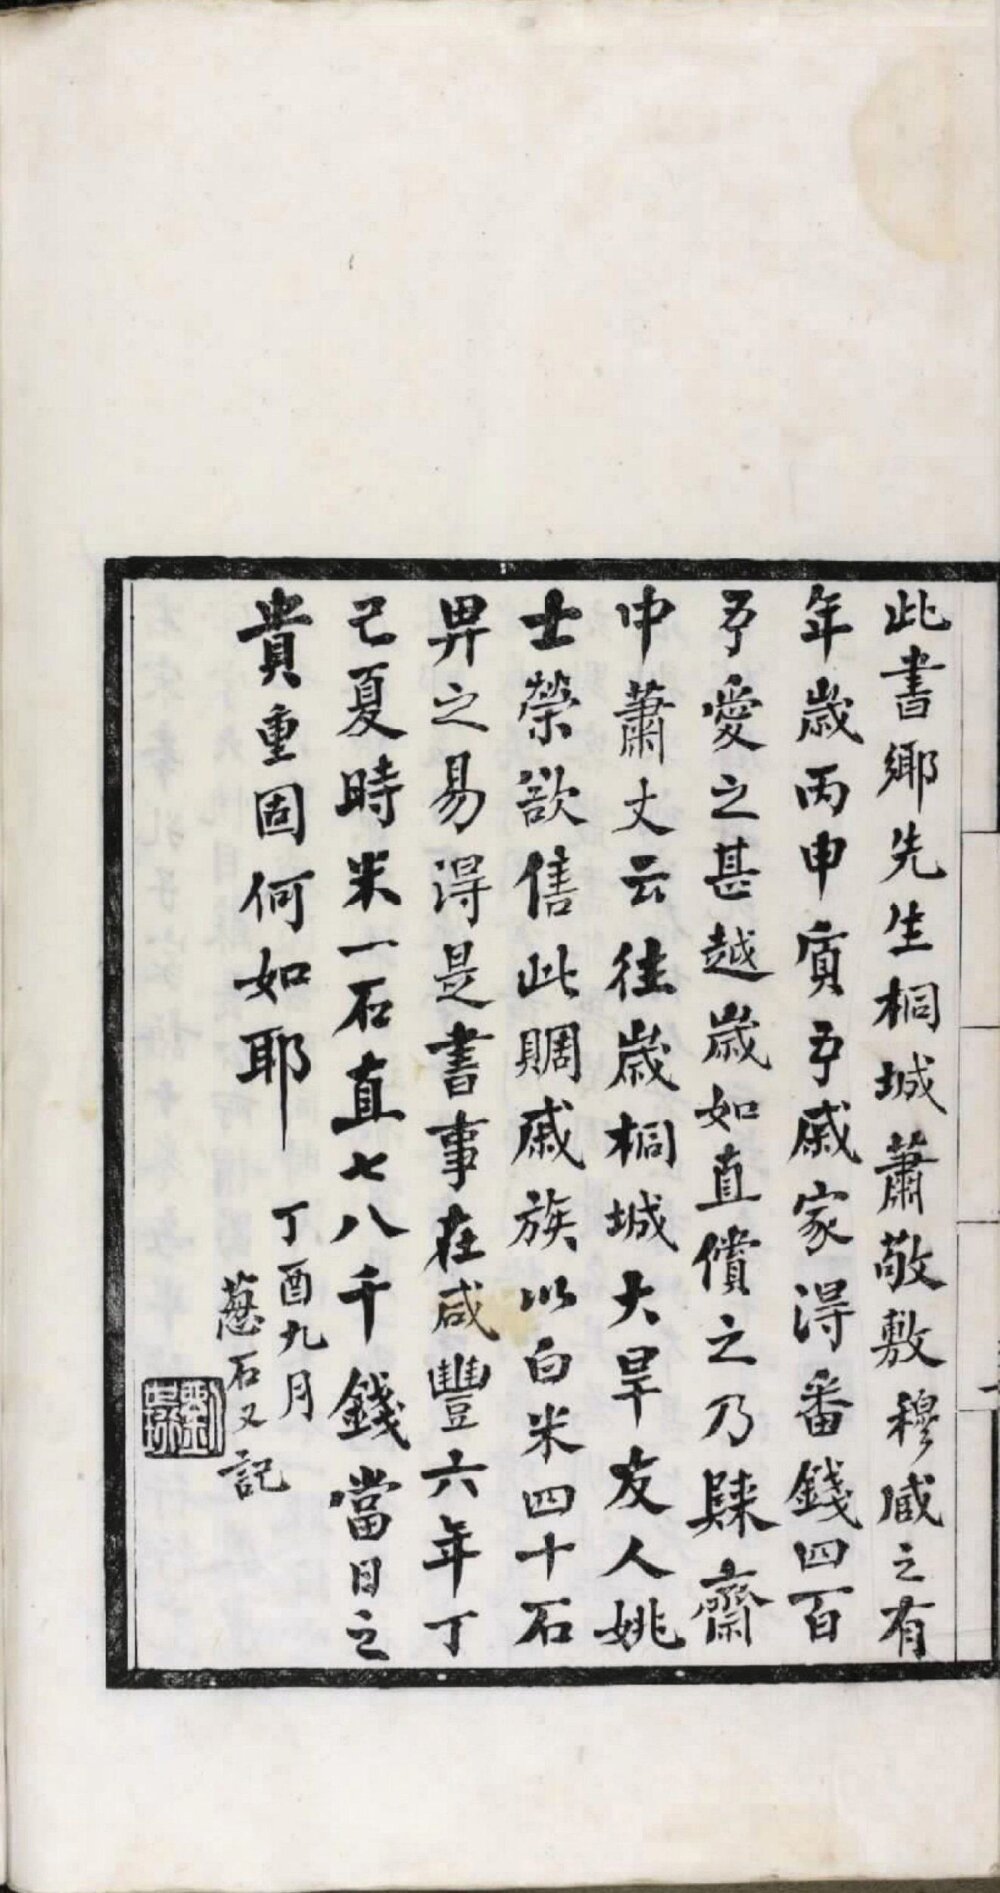 此書鄉先生桐城蕭敬敷穆臧之有
年歲丙申質予戚家得番錢四百
予愛之甚越歲如直償之乃歸齋
中蕭丈云往歲桐城大旱友人姚
士榮欲售此賙戚族以白米四十石
畀之易得是書事在咸豐六年丁
巳夏時米一石直七八千錢當日之
貴重固何如耶
丁酉九月
蔥石又記
劉世珩